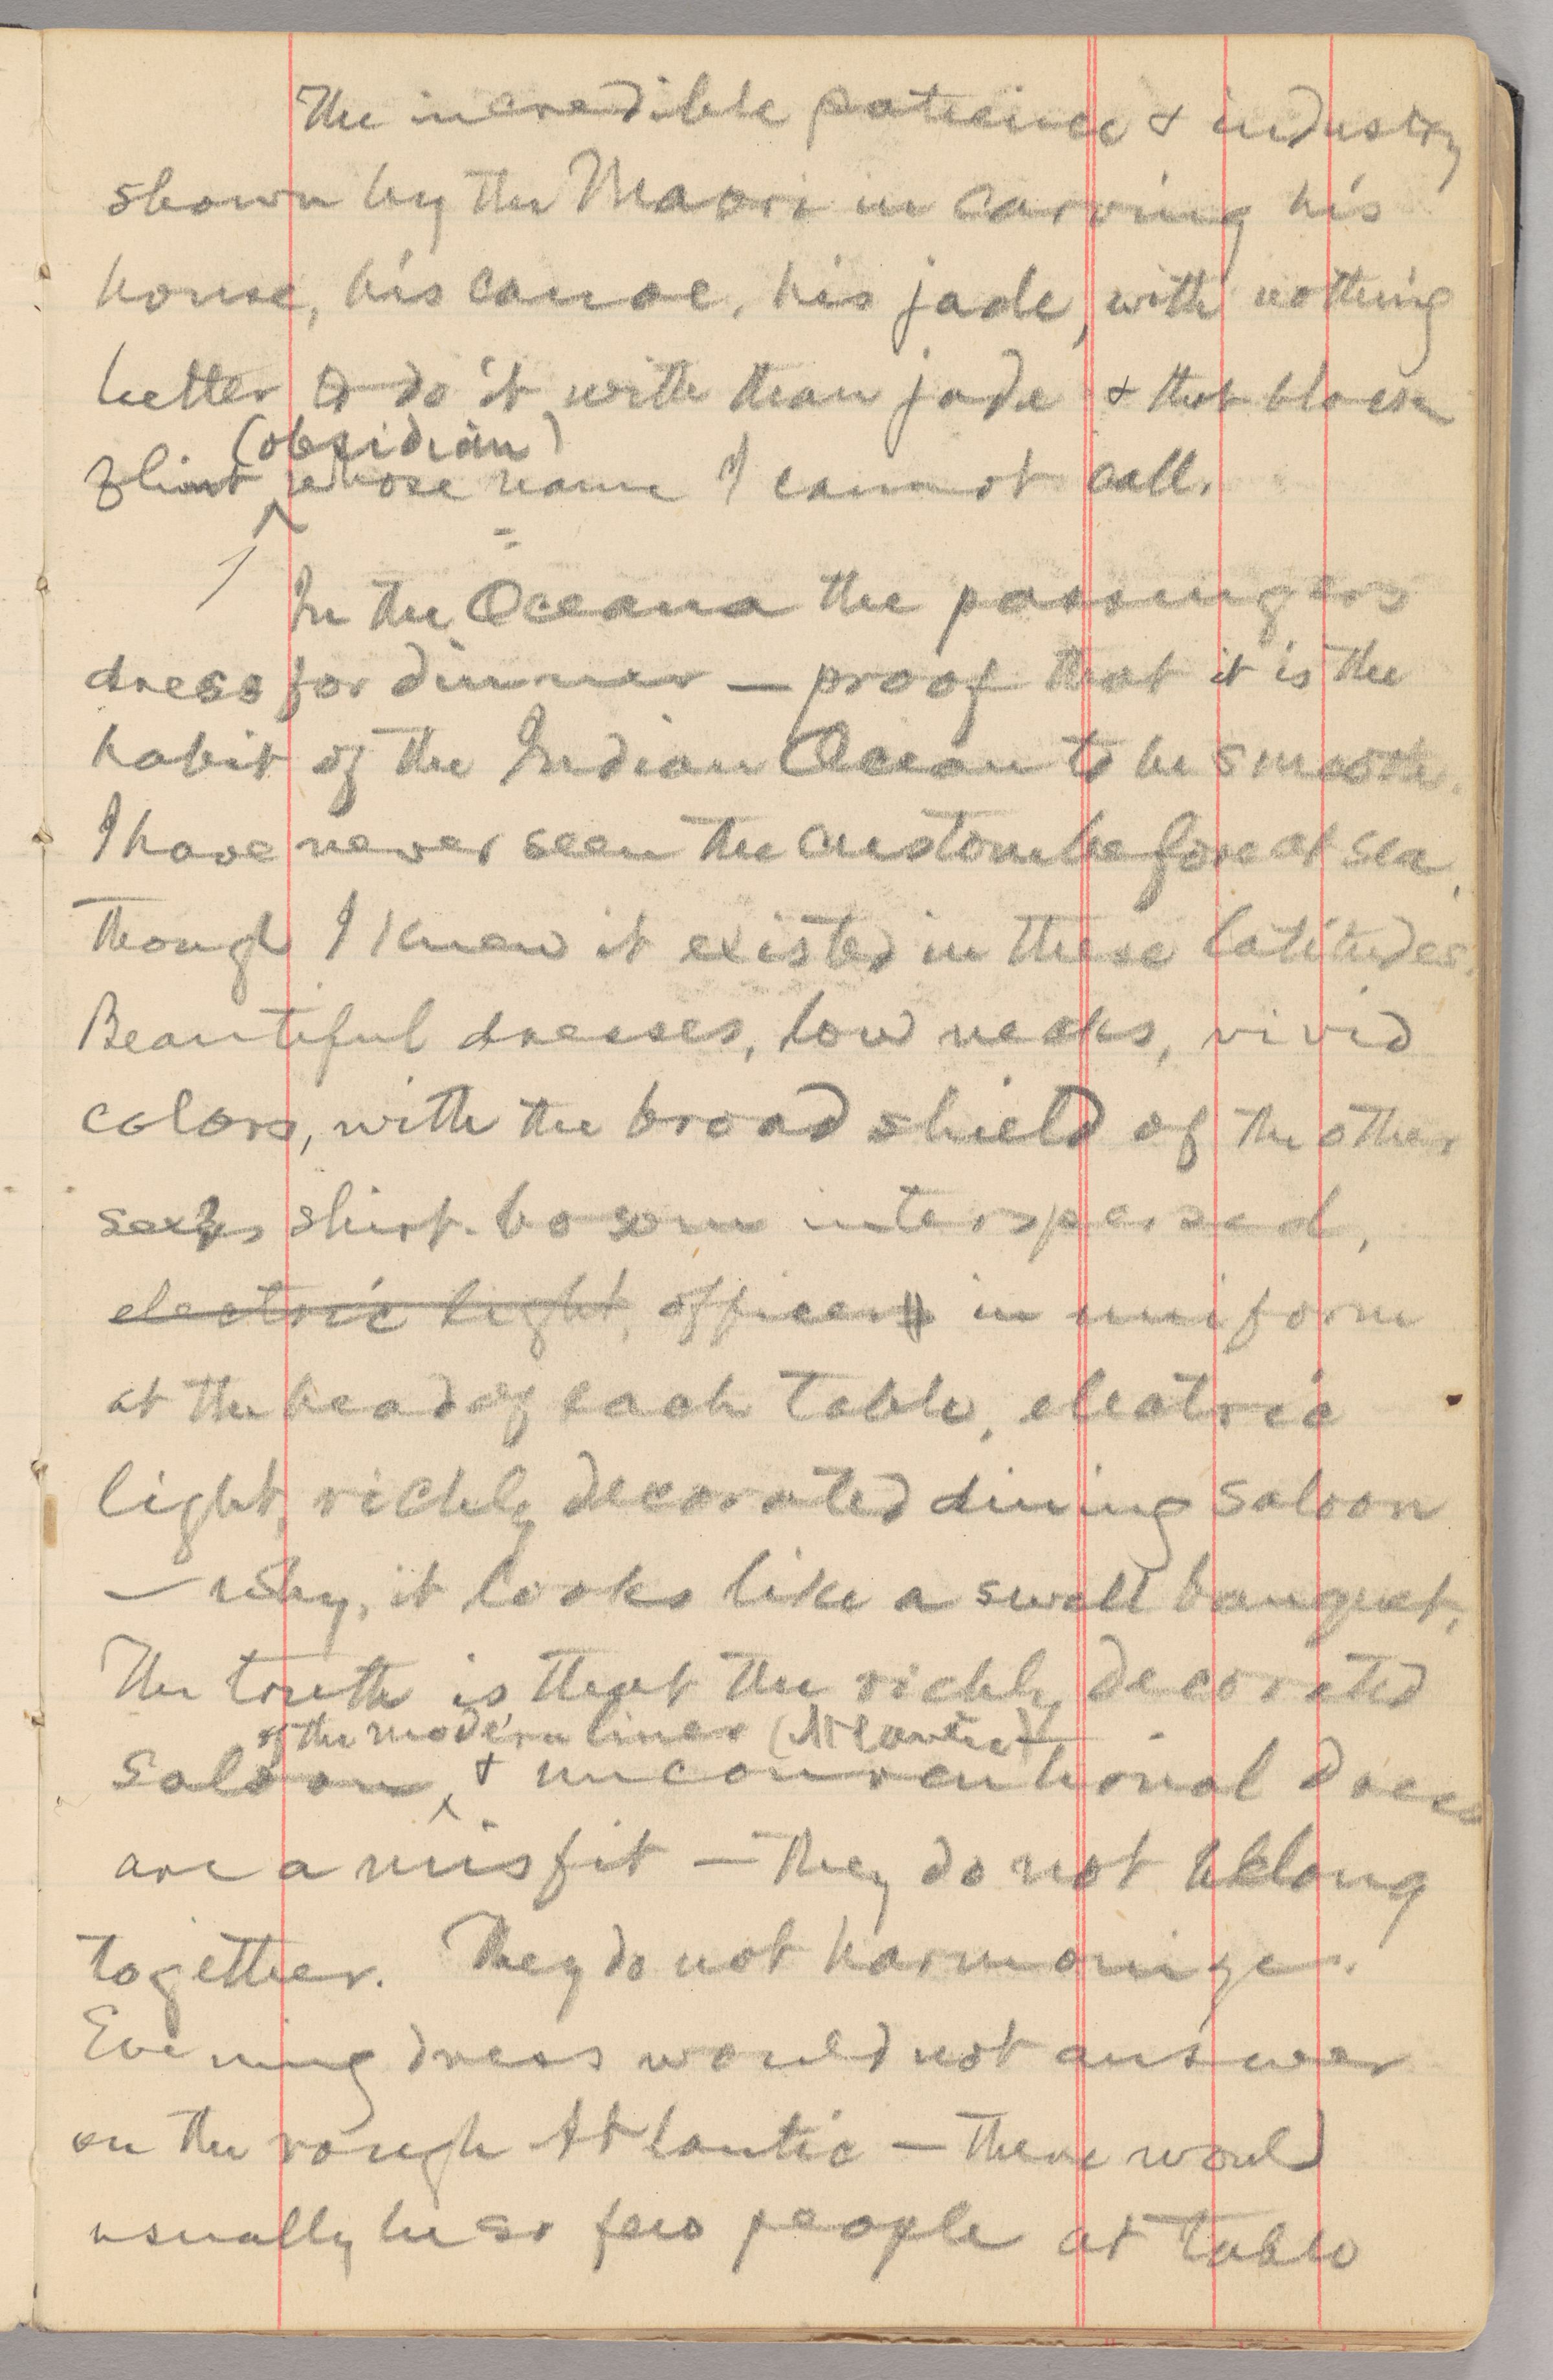 The incredible patience & industry
shown by the Maori in carving his
house, his canoe, his jade, with nothing
better to do it with than jade & that black
(obsidian)
flint whose name I cannot call.
=
In the Oceana the passengers
dress for dinner — proof that it is the
habit of the Indian Ocean to be smooth.
I have never seen the custom before at sea,
though I knew it existed in these latitudes.
Beautiful dresses, low necks, vivid
colors, with the broad shield of the other
sex's shirt-bosom interspersed,
electric light, officers in uniform
at the head of each table, electric
light, richly decorated dining saloon
— why, it looks like a swell banquet.
The truth is that the richly decorated
of the modern liner (Atlantic)
saloon, & unconventional dress
are a misfit — they do not belong
together. They do not harmonize.
Evening dress would not answer
on the rough Atlantic — there would
usually be so few people at table